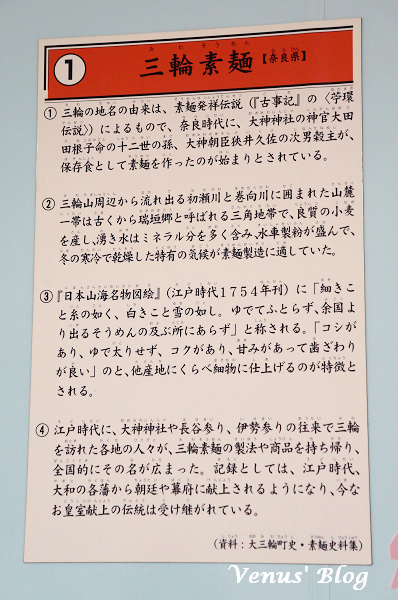 ① 三輪素麺【奈良県】
① 三輪の地名の由来は、素麺発祥伝説（『古事記』の〈苧環
伝説〉）によるもので、奈良時代に、大神神社の神官大田
田根子命の十二世の孫、大神朝臣狭井久佐の次男穀主が、
保存食として素麺を作ったのが始まりとされている。
② 三輪山周辺から流れ出る初瀬川と巻向川に囲まれた山麓
一帯は古くから瑞垣郷と呼ばれる三角地帯で、良質の小麦
を産し、湧き水はミネラル分を多く含み、水車製粉が盛んで、
冬の寒冷で乾燥した特有の気候が素麺製造に適していた。
③『日本山海名物図絵』（江戸時代1754年刊）に「細きこ
と糸の如く、白きこと雪の如し。ゆでてふとらず、余国よ
り出るそうめんの及ぶ所にあらず」と称される。「コシが
あり、ゆで太りせず、コクがあり、甘みがあって歯ざわり
が良い」のと、他産地にくらべ細物に仕上げるのが特徴と
される。
④ 江戸時代に、大神神社や長谷参り、伊勢参りの往来で三輪
を訪れた各地の人々が、三輪素麺の製法や商品を持ち帰り、
全国的にその名が広まった。記録としては、江戸時代、
大和の各藩から朝廷や幕府に献上されるようになり、今な
お皇室献上の伝統は受け継がれている。
（資料：大三輪町史・素麺史料集）
Venus' Blog